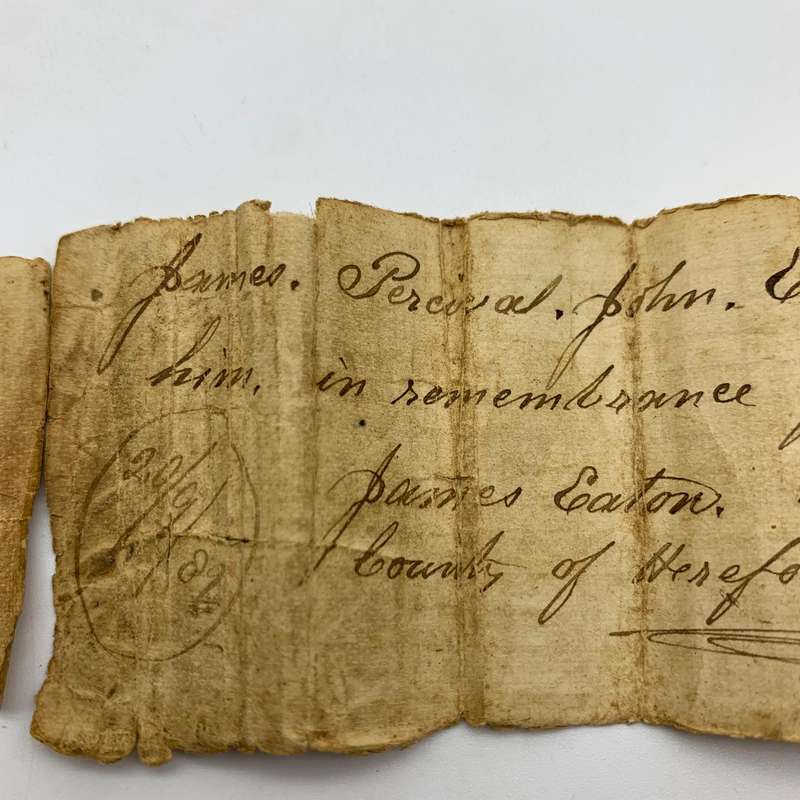 James. Percival. John. E
him. in remembrance
James Eaton.
County of Herefo
20/9/82